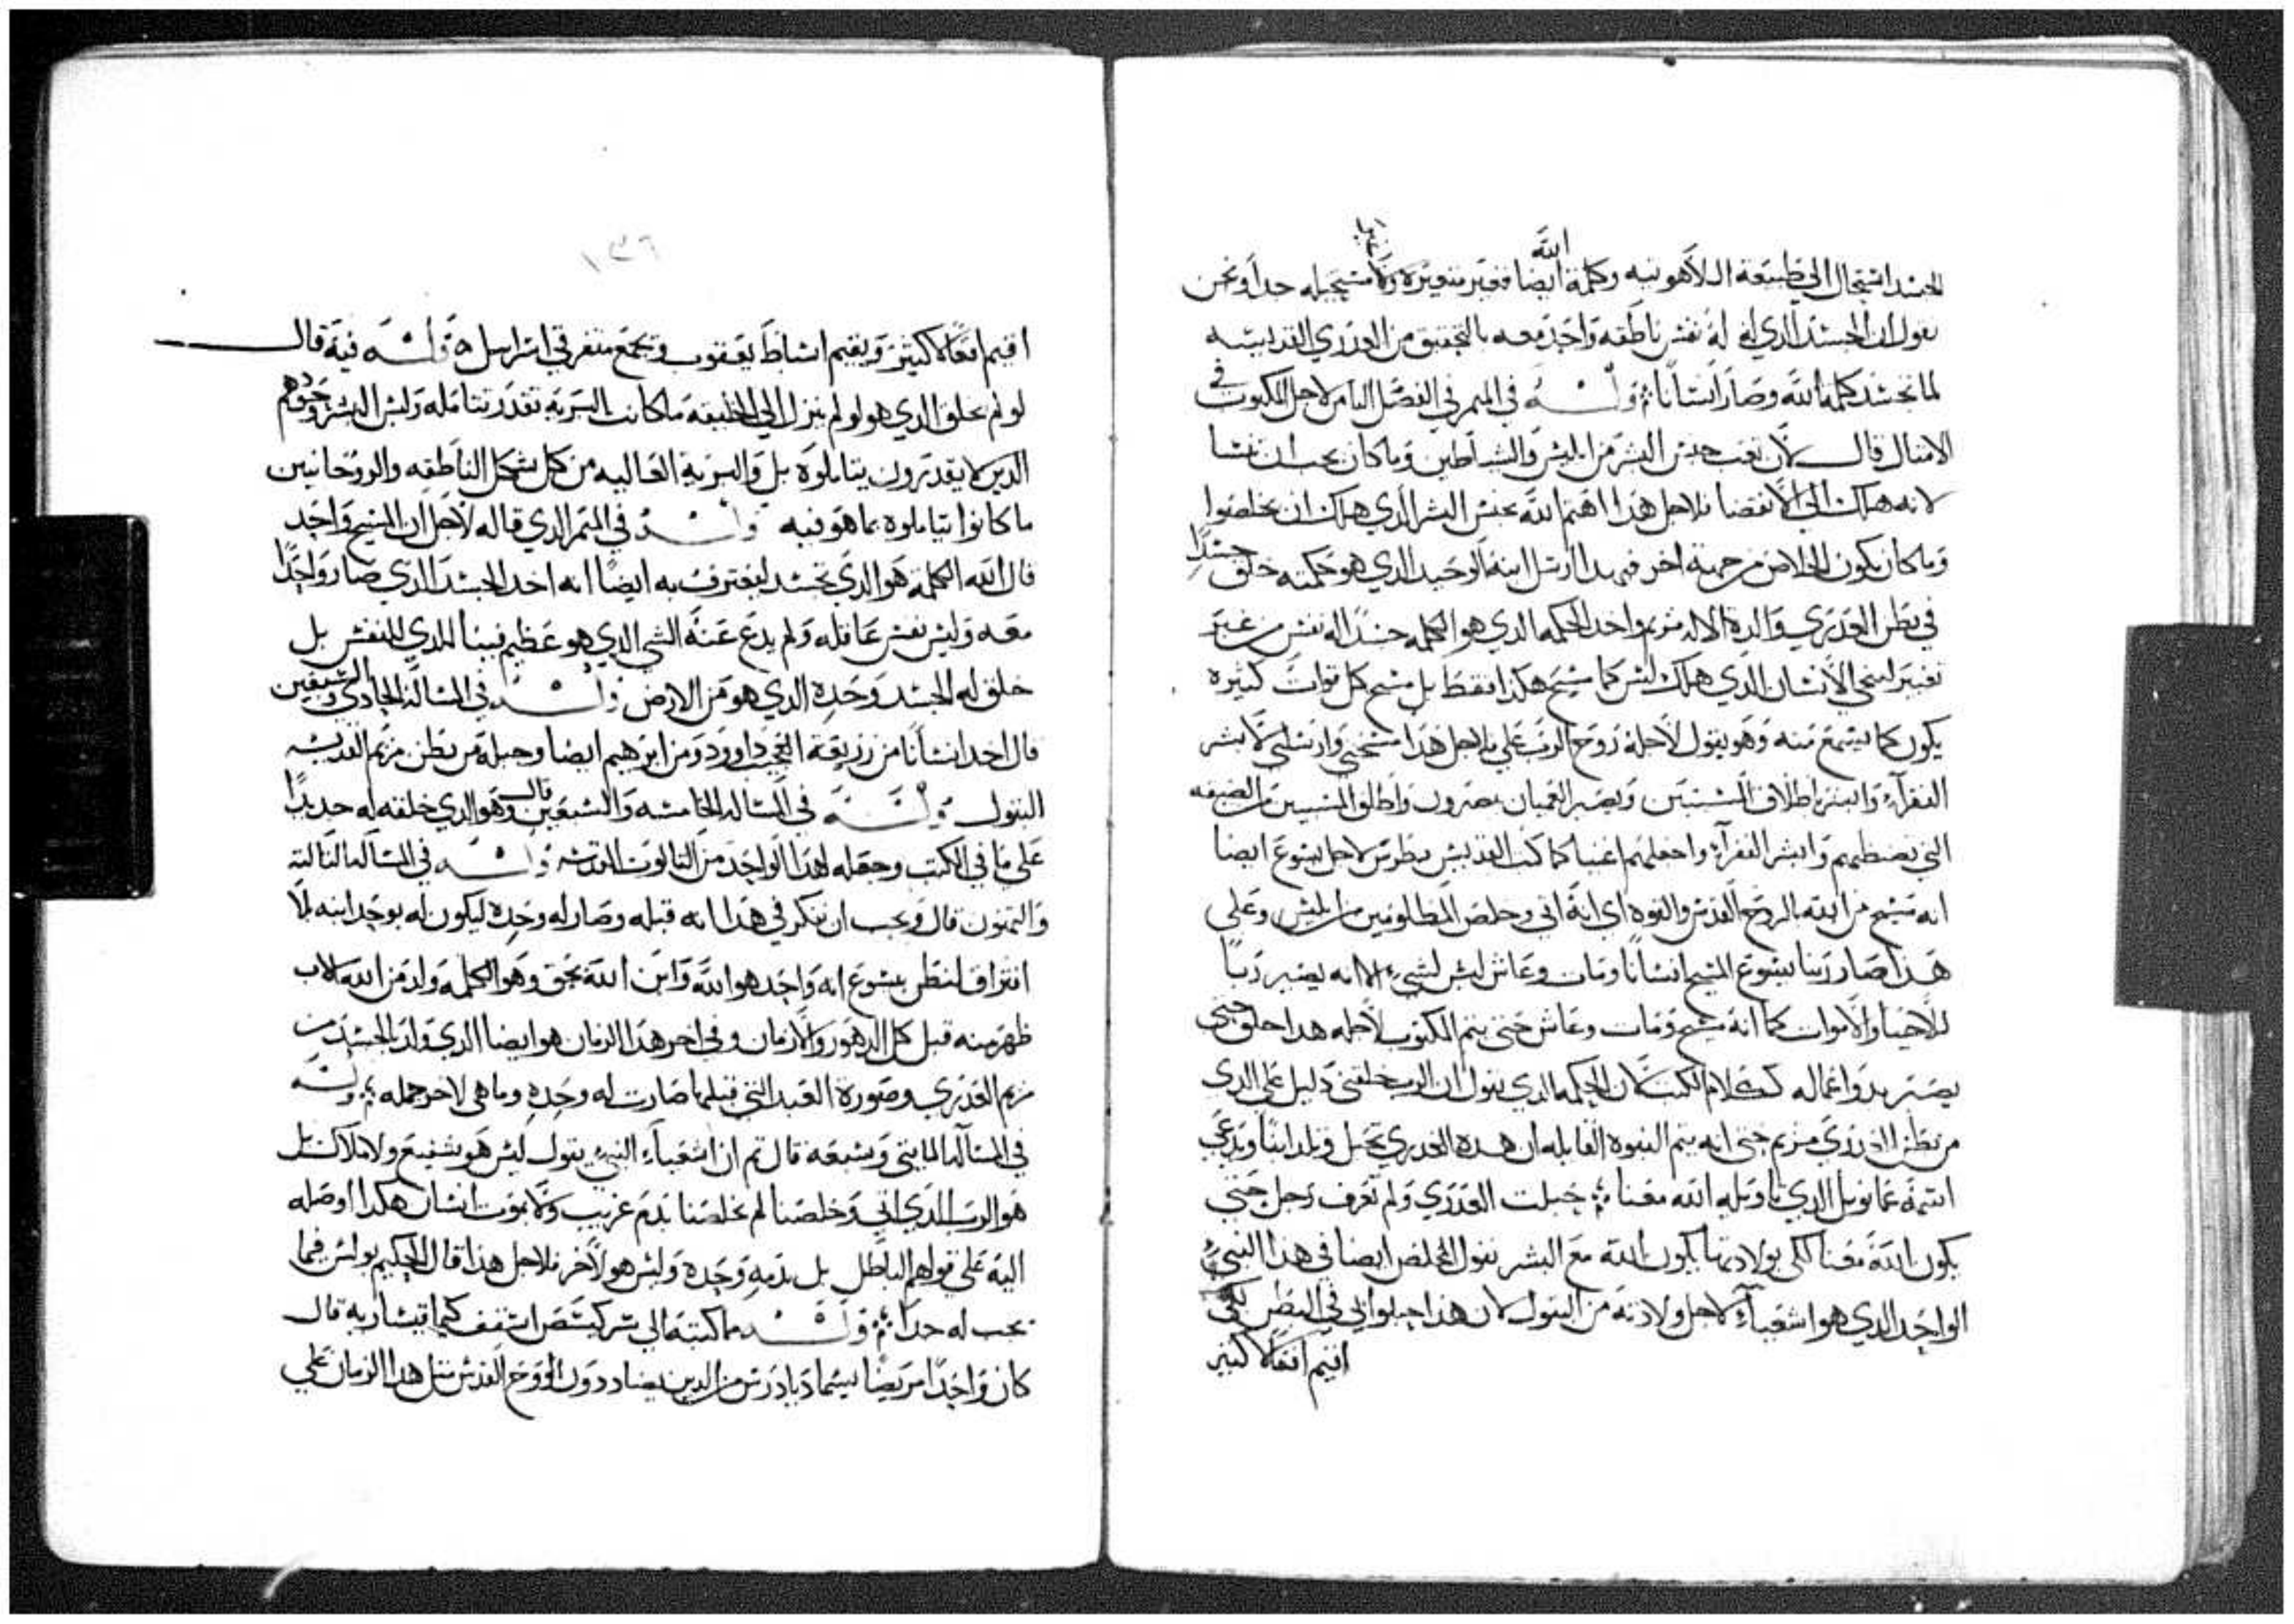 الجسد استحال الي طبيعة اللاهوتيه وكلمة الله ايضا فغير متغيره ولا مستحيله جدا ونحن
نقول ان الجسد الدي له نفس ناطقه واحد معه بالتحقيق من العدري القديسه
لما تجسد كلمة الله وصار انسانا وله في الميمر في الفصل الثامن لاجل المكتوب في
الامثال قال لان تعب جنس البشر من ابليس والشياطين وما كان يجب ان
لانه هلك الي الانقضا فلاجل هدا اهتم الله بجنس البشر الدي هلك ان يخلصوا
وما كان يكون الخلاص من جهة اخر فبهدا ارسل ابنه الوحيد الدي هو حكمته خلق جسدا
في بطن العدري والدة الاله مريم واخد الحكمه الدي هو الكلمه جسدا له نفس من غير
تغيير لينجي الانسان الدي هلك ليس كما مسيح هكدا فقط بل مسح كل قوات كثيره
يكون كما يسمع منه وهو يقول لاجله روح الرب علي فلاجل هدا مسحني وارسلني لابشر
الفقرآء وابشر باطلاق المسبيين ويصير العميان يبصرون واطلق المسبيين من الضيقه
التي تضبطهم وابشر الفقرآء واجعلهم اغنيا كما كتب القديس بطرس لاجل يسوع ايضا
انه مسح من الله بالروح القدس والقوه اي انه اتي وخلص المظلومين من ابليس وعلي
هدا صار ربنا يسوع المسيح انسانا ومات وعاش ليس لشي الا انه يصير ربا
للاحيا والاموات كما انه مسيح ومات وعاش حتي يتم المكتوب لاجله هدا خلق حتي
يصير بدو اعماله كـكلام الكتب لان الحكمه الدي يقول ان الرب خلقني دليل علي الدي
من بطن العدري مريم حتي انه يتم النبوه القايله ان هده العدري تحبل وتلد ابنا ويدعي
اسمه عمانويل الدي تاويله الله معنا حبلت العدري ولم تعرف رجل حتي
يكون الله معنا لكي بولادتها يكون الله مع البشر نقول المخلص ايضا في هدا النبي
الواحد الدي هو اشعيآء لاجل ولادته من البتول لان هدا حبلوا بي في البطن لكي
اقيم افعالا كثير
١٣٦
اقيم افعالا كثيره ويقيم اسباط يعقوب ويجمع متفرقي اسراييل وله فيه قال
لو لم يخلق الدي هو لو لم ينزل الي الخليقه ما كانت البريه تقدر تتامله وليس البشر وحدهم
الدين لا يقدرون يتاملوه بل والبريه العاليه من كل شكل الناطقه والروحانيين
ما كانوا يتاملوه بما هو فيه وله في الميمر الدي قاله لاجل ان المسيح واحد
قال الله الكلمة هو الدي تجسد ليعترف به ايضا انه اخد الجسد الدي صار واحدا
معه وليس نفس عاقله ولم يدع عنه الشي الدي هو عظيم فينا الدي للنفس بل
خلق له الجسد وحده الدي هو من الارض وله في المسالة الحادي والسبعين
قال اخد انسانا من زريعة داوود ومن ابرهيم ايضا وحبله من بطن مريم القديسه
البتول وله في المسالة الخامسه والسبعين قال وهو الدي خلقه له جديدا
علي ما في الكتب وجعله لهدا الواحد من التالوت المقدسه وله في المسآله التالته
والتمنون قال ويجب ان نفكر في هدا انه قبله وصار له وحده ليكون له بوحدانيه بلا
افتراق لنظن بيسوع انه واحد هو الله وابن الله بحق وهو الكلمة ولد من الله الاب
ظهر منه قبل كل الدهور والازمان وفي اخر هدا الزمان هو ايضا الدي ولد الجسد من
مريم العدري وصورة العبد التي قبلها صارت له وحده وما هي لاخر جمله وله
في المسآله المايتي وسبعه قال تم ان اشعيآء النبي يقول ليس هو شفيع ولا ملاك بل
هو الرب الدي اتي وخلصنا لم يخلصنا بدم غريب ولا بموت انسان هكدا اوصله
اليه علي قولهم الباطل بل بدمه وحده وليس هو لاخر فلاجل هدا قال الحكيم بولس فيما
يجب له جدا وله مما كتبه الي اسقف قيساريه قال
كان واحدا مريضا يسما من الدين يضاددون الروح القدس متل هدا الزمان علي